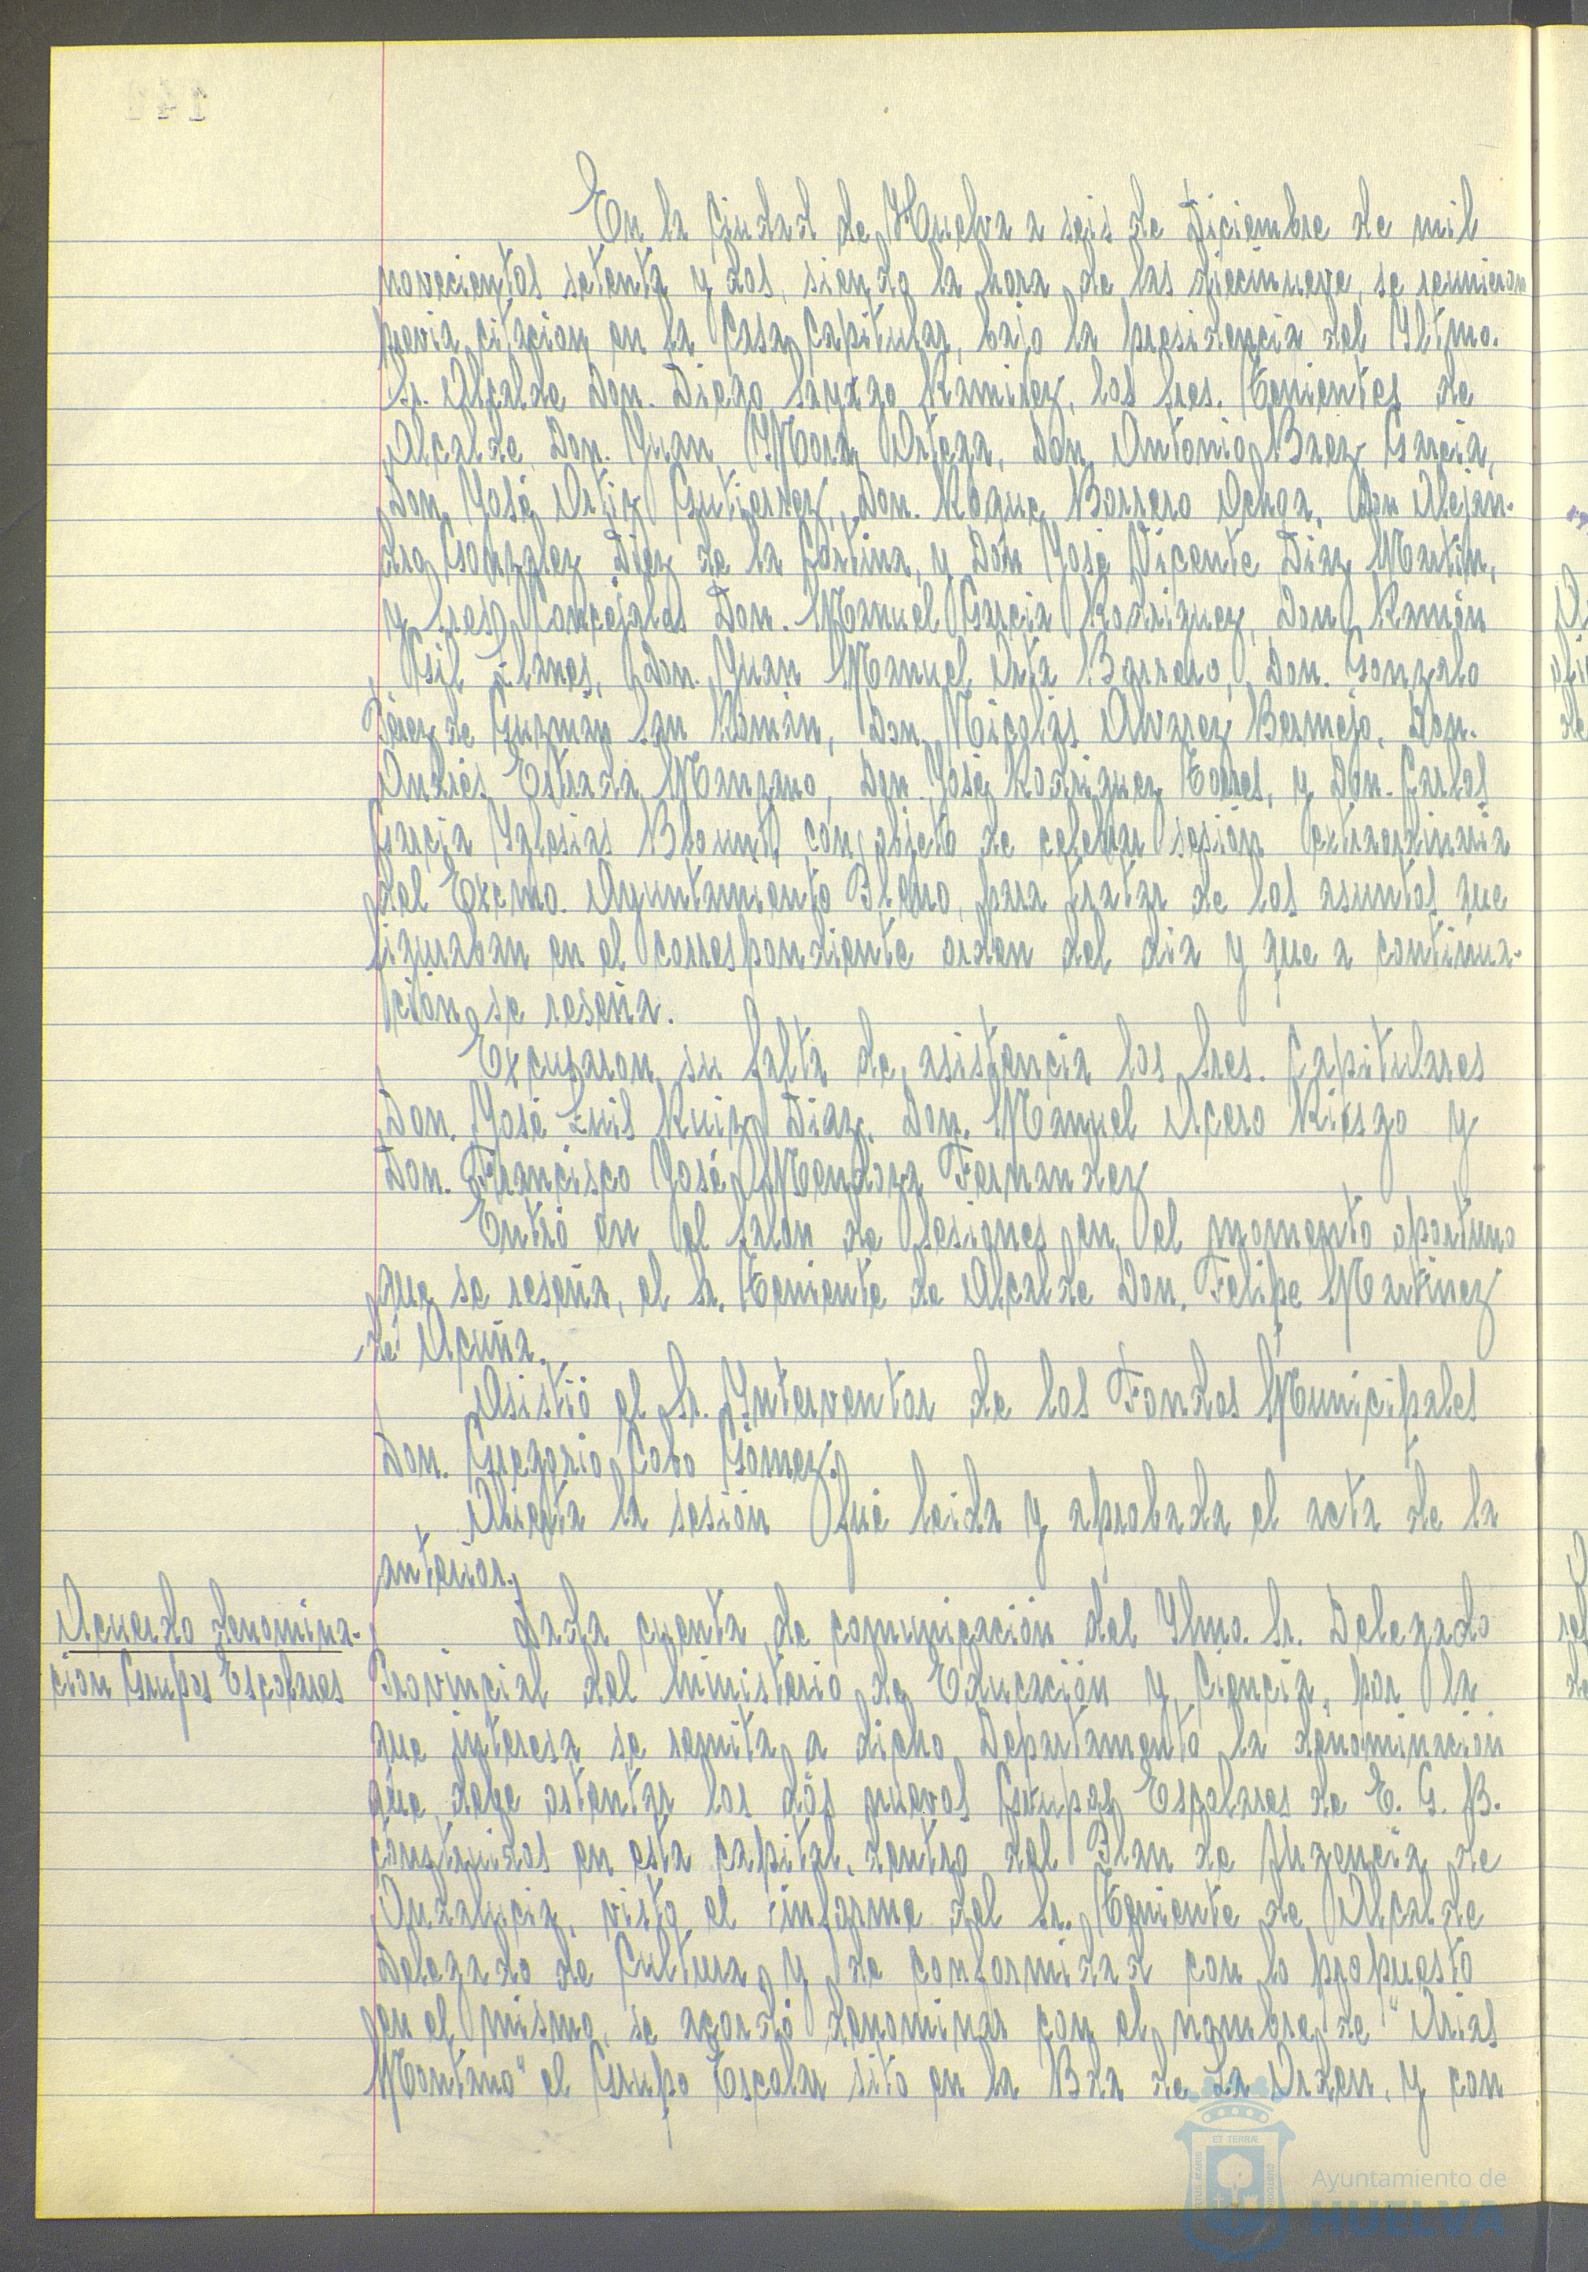 En la Ciudad de Huelva a seis de Diciembre de mil
novecientos setenta y dos, siendo la hora de las diecinueve, se reunieron
previa citacion en la Casa Capitular, bajo la presidencia del Iltmo.
Sr. Alcalde Don. Diego Sayago Ramirez, los Sres. Tenientes de
Alcalde, Don. Juan Mora Ortega, Don Antonio Baez Garcia,
Don José Ortiz Gutierrez, Don. Roque Borrero Ochoa, Don Alejan-
dro Gonzalez Diez de la Cortina, y Don José Vicente Diaz Martin,
y Sres. Concejales Don. Manuel Garcia Rodriguez, Don Ramón
Gil Llanes, Don. Juan Manuel Orta Borrero, Don. Gonzalo
Pérez de Guzmán San Román, Don Nicolás Alvarez Bermejo, Don.
Andrés Estrada Manzano, Don. José Rodriguez Torres, y Don. Carlos
Garcia Yglesias Blount, con objeto de celebrar sesión extraordinaria
del Excmo. Ayuntamiento Pleno, para tratar de los asuntos que
figuraban en el correspondiente orden del dia y que a continua-
ción se reseña.
Excusaron su falta de asistencia los Sres. Capitulares
Don. José Luis Ruiz Diaz, Don. Manuel Acero Riesgo y
Don. Francisco José Mendoza Fernandez
Entró en el Salón de Sesiones en el momento oportuno
que se reseña, el Sr. Teniente de Alcalde Don. Felipe Martinez
de Acuña.
Asistió el Sr. Ynterventor de los Fondos Municipales
Don. Gregorio Cobo Gómez.
Abierta la sesión fué leida y aprobada el acta de la
anterior.
Acuerdo denomina-
cion Grupos Escolares
Dada cuenta de comunicación del Ylmo. Sr. Delegado
Provincial del Ministerio de Educación y Ciencia, por la
que interesa se remita a dicho Departamento la denominación
que debe ostentar los dos nuevos Grupos Escolares de E. G. B.
construidos en esta capital, dentro del Plan de Urgencia de
Andalucia, visto el informe del Sr. Teniente de Alcalde
Delegado de Cultura y de conformidad con lo propuesto
en el mismo, se acordó denominar con el nombre de "Arias
Montano" el Grupo Escolar sito en la Bda de La Orden, y con
Ayuntamiento de
HUELVA